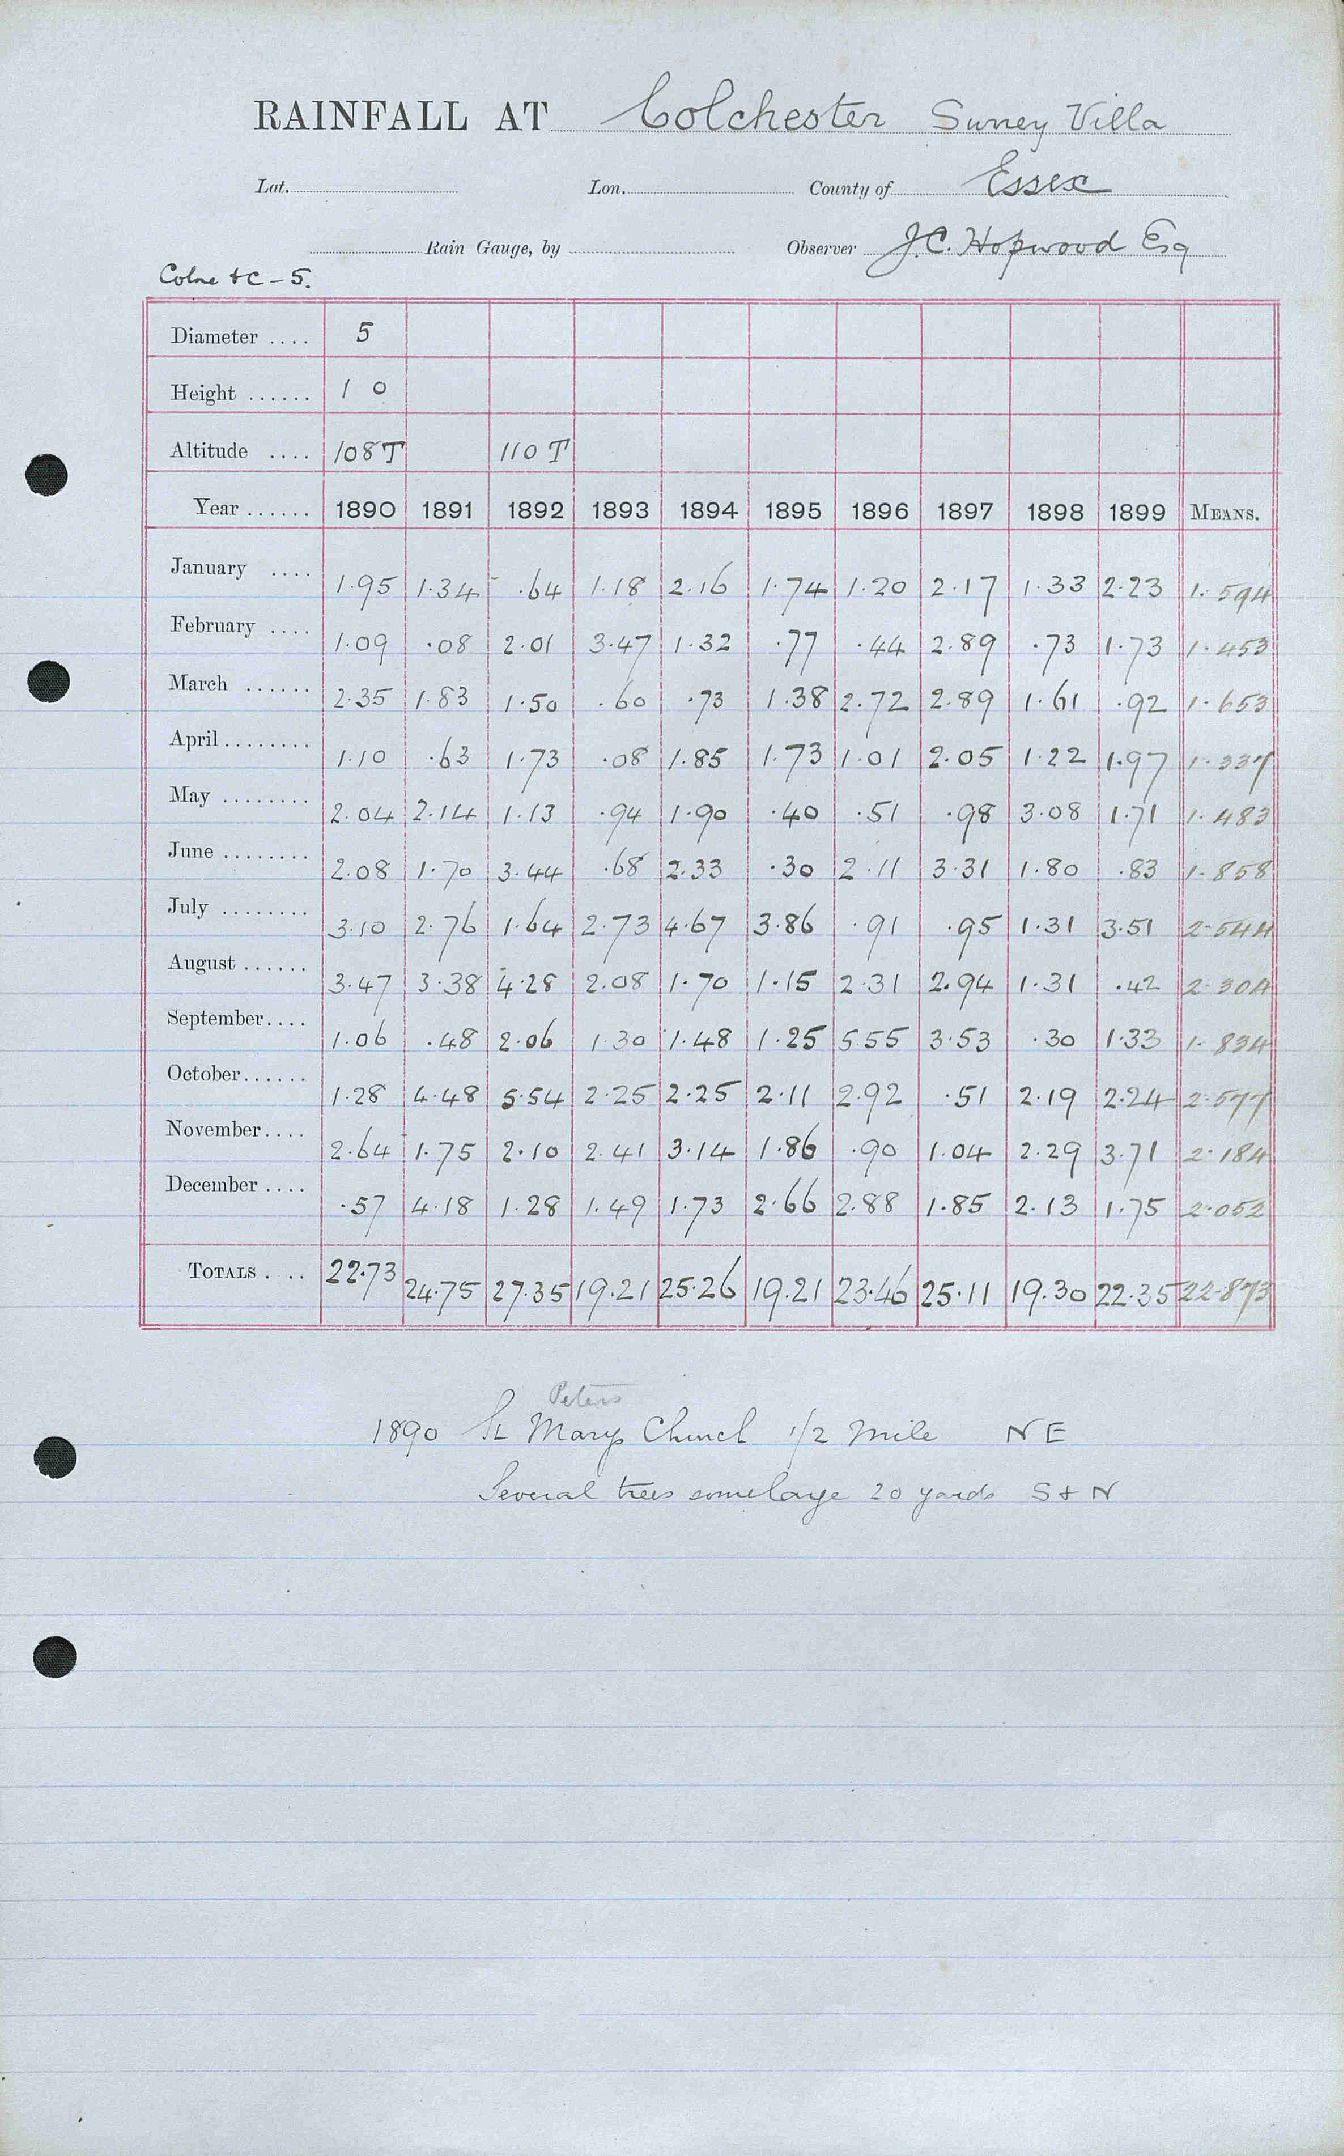 RAINFALL AT Colchester Surrey Villa
Lat. Lon. County of Essex
Rain Gauge, by Observer J.C. Hopwood Esq
Colne &C - 5.
Diameter .... 5
Height ...... 1 0
Altitude .... 108T 110T
Year ...... 1890 1891 1892 1893 1894 1895 1896 1897 1898 1899 MEANS.
January .... 1.95 1.34 .64 1.18 2.16 1.74 1.20 2.17 1.33 2.23 1.594
February .... 1.09 .08 2.01 3.47 1.32 .77 .44 2.89 .73 1.73 1.453
March ...... 2.35 1.83 1.50 .60 .73 1.38 2.72 2.89 1.61 .92 1.653
April ........ 1.10 .63 1.73 .08 1.85 1.73 1.01 2.05 1.22 1.97 1.337
May ........ 2.04 2.14 1.13 .94 1.90 .40 .51 .98 3.08 1.71 1.483
June ........ 2.08 1.70 3.44 .68 2.33 .30 2.11 3.31 1.80 .83 1.858
July ........ 3.10 2.76 1.64 2.73 4.67 3.86 .91 .95 1.31 3.51 2.544
August ...... 3.47 3.38 4.28 2.08 1.70 1.15 2.31 2.94 1.31 .42 2.304
September .... 1.06 .48 2.06 1.30 1.48 1.25 5.55 3.53 .30 1.33 1.834
October ...... 1.28 4.48 5.54 2.25 2.25 2.11 2.92 .51 2.19 2.24 2.577
November .... 2.64 1.75 2.10 2.41 3.14 1.86 .90 1.04 2.29 3.71 2.184
December .... .57 4.18 1.28 1.49 1.73 2.66 2.88 1.85 2.13 1.75 2.052
TOTALS .... 22.73 24.75 27.35 19.21 25.26 19.21 23.46 25.11 19.30 22.35 22.873
Peters
1890 St Marys Church 1/2 Mile NE
Several trees some large 20 yards S & N